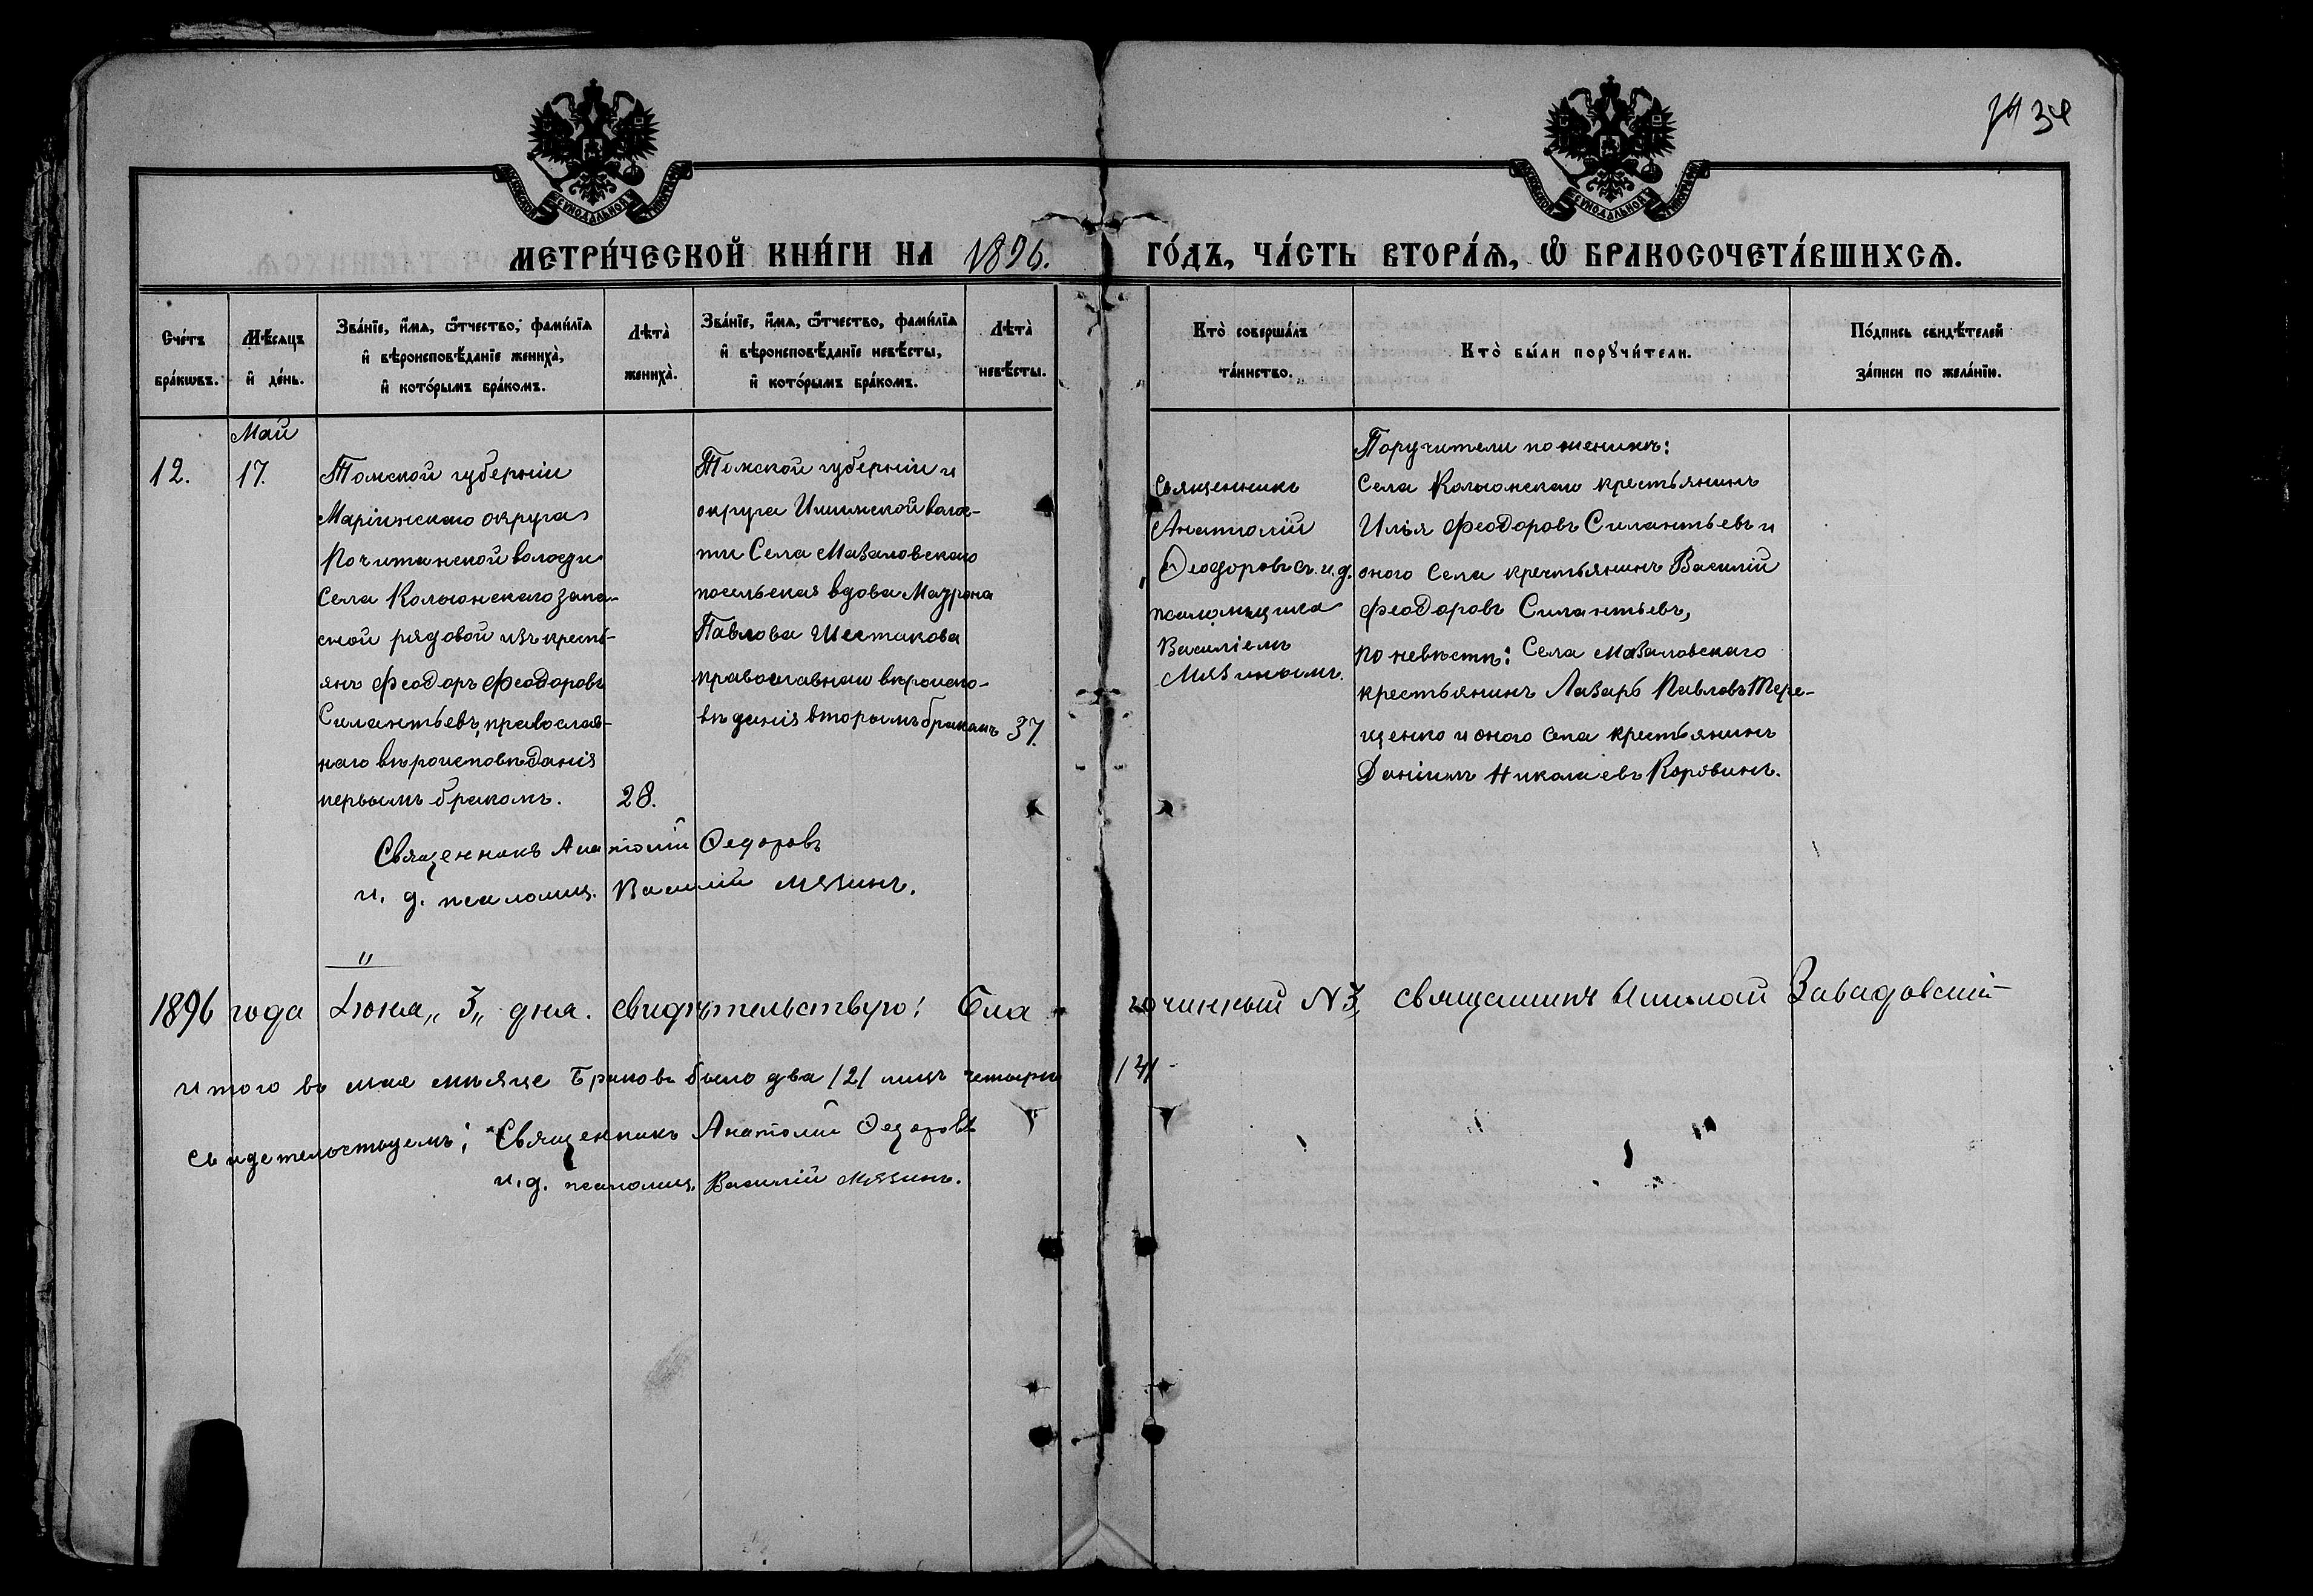 34
МЕТРИ́ЧЕСКОЙ КНИ́ГИ НА 1896. ГО́ДЪ, ЧА́СТЬ ВТОРА́Ѧ, Ѽ БРАКОСОЧЕТА́ВШИХСѦ.
Сче́тъ
бра́кѡвъ.
Мѣ́сяцъ
и҆ де́нь.
Зва́нїе, и҆́мѧ, ѻ҆́тчество, фами́лїѧ
и҆ вѣроисповѣ́данїе жениха̀,
и҆ кото́рымъ бра́комъ.
Лѣта̀
жениха̀.
Зва́нїе, и҆́мѧ, ѻ҆́тчество, фами́лїѧ
и҆ вѣроисповѣ́данїе невѣ́сты,
и҆ кото́рымъ бра́комъ.
Лѣта̀
невѣ́сты.
Кто̀ соверша́лъ
та́инство.
Кто̀ бы́ли порꙋчи́тели.
По́дпись свидѣ́телей
за́писи по жела́нїю.
12.
Май
17.
Томской губерніи
Маріинскаго округа
Почитанской волости
Села Колыонскаго запа-
сной рядовой изъ кресть-
янъ Феодоръ Феодоровъ
Силантьевъ, православ-
наго вѣроисповѣданія
первымъ бракомъ.
28.
Томской губерніи и
округа Ишимской волос-
ти Села Мазаловскаго
посельская вдова Мавρона
Павлова Шестакова
православнаго вѣроиспо-
вѣданія вторымъ бракомъ
37.
Священникъ
Анатолій
Ѳеодоровъ съ и. д.
псаломщика
Василіемъ
Мязинымъ.
Поручители по женихѣ:
Села Колыонскаго крестьянинъ
Илья Феодоровъ Силантьевъ и
оного Села крестьянинъ Василій
Феодоровъ Силантьевъ,
по невѣстѣ: Села Мазаловскаго
крестьянинъ Лазарь Павловъ Тере-
щенко и оного села крестьянинъ
Даніилъ Николаевъ Коровинъ.
Священникъ Анатолій Ѳедоровъ
и. д. псаломщ. Василій Мязинъ.
"
1896 года Іюня „3„ дня. свидѣтельствую: Благочинный N 3, священникъ Николай Завадовскій
итого въ мае мѣсяце Браковъ было два /2/ лицъ четыре /4/
свидетельствуемъ: Священникъ Анатолій Ѳедоровъ
и. д. псаломщ. Василій Мязинъ.